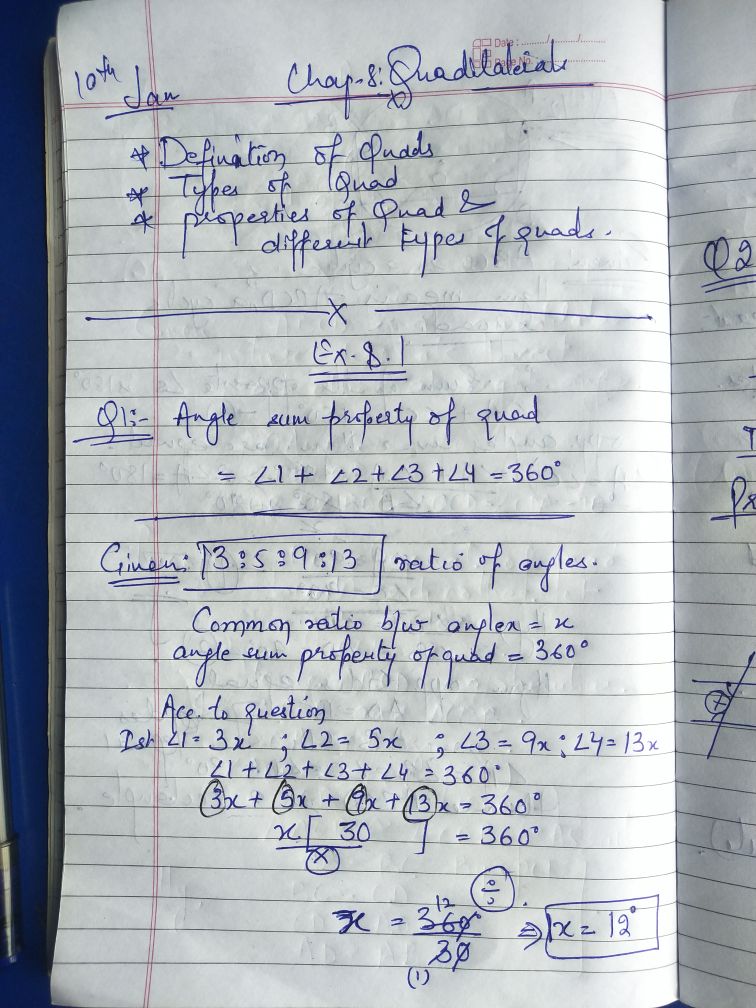 10th Jan
Date :
Page No.
Chap-8: Quadrilaterals
* Defination of Quads
* Types of Quad
* properties of Quad &
different types of quads.
X
Ex-8.1
Q1:- Angle sum property of quad
= ∠1 + ∠2 + ∠3 + ∠4 = 360°
Given: 3:5:9:13 ratio of angles.
Common ratio b/w angles = x
angle sum property of quad = 360°
Acc. to question
∠1 = 3x ; ∠2 = 5x ; ∠3 = 9x ; ∠4 = 13x
∠1 + ∠2 + ∠3 + ∠4 = 360°
3x + 5x + 9x + 13x = 360°
x [ 30 ] = 360°
(x)
(÷)
12
x = 360° ⇒ x = 12°
30
(1)
Q2
Pr